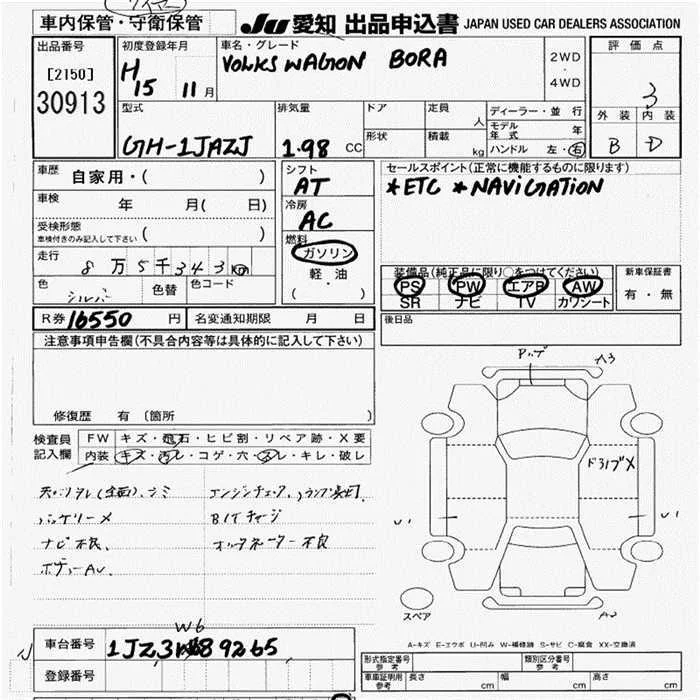 車内保管・守衛保管
JU 愛知 出品申込書 JAPAN USED CAR DEALERS ASSOCIATION
出品番号
[2150]
30913
初度登録年月
H15 11月
車名・グレード
VOLKS WAGION BORA
2WD
・
4WD
評価点
3
外装 内装
B D
型式
GH-1JAZJ
排気量
1.98 CC
ドア
定員
人
形状
積載
kg
ディーラー・並行
モデル年式 年
ハンドル 左・右
車歴
自家用・( )
車検
年 月( 日)
受検形態
車検付きのみ記入して下さい ( )
走行
8万5千343km
色
シルバー
色替
色コード
シフト
AT
冷房
AC
燃料
ガソリン
軽・油
( )
セールスポイント(正常に機能するものに限ります)
*ETC *NAViGATiON
装備品(純正品に限り○をつけてください)
PS PW エアB AW
SR ナビ TV カワシート
新車保証書
有・無
R券 16550 円
名変通知期限 月 日
後日品
注意事項申告欄(不具合内容等は具体的に記入して下さい)
修復歴 有〔箇所 〕
検査員記入欄
FW キズ・飛石・ヒビ割・リペア跡・X要
内装 キズ・汚レ・コゲ・穴・スレ・キレ・破レ
バッテリーメ
ナビ不良
オルタネーター不良
A3
U1
U1
A2
スペア
A-キズ E-エクボ U-凹み W-補修跡 S-サビ C-腐食 XX-交換済
W6
車台番号
登録番号
形式指定番号 参考
類別区分番号 参考
車庫証明用 参考
長さ cm
幅 cm
高さ cm